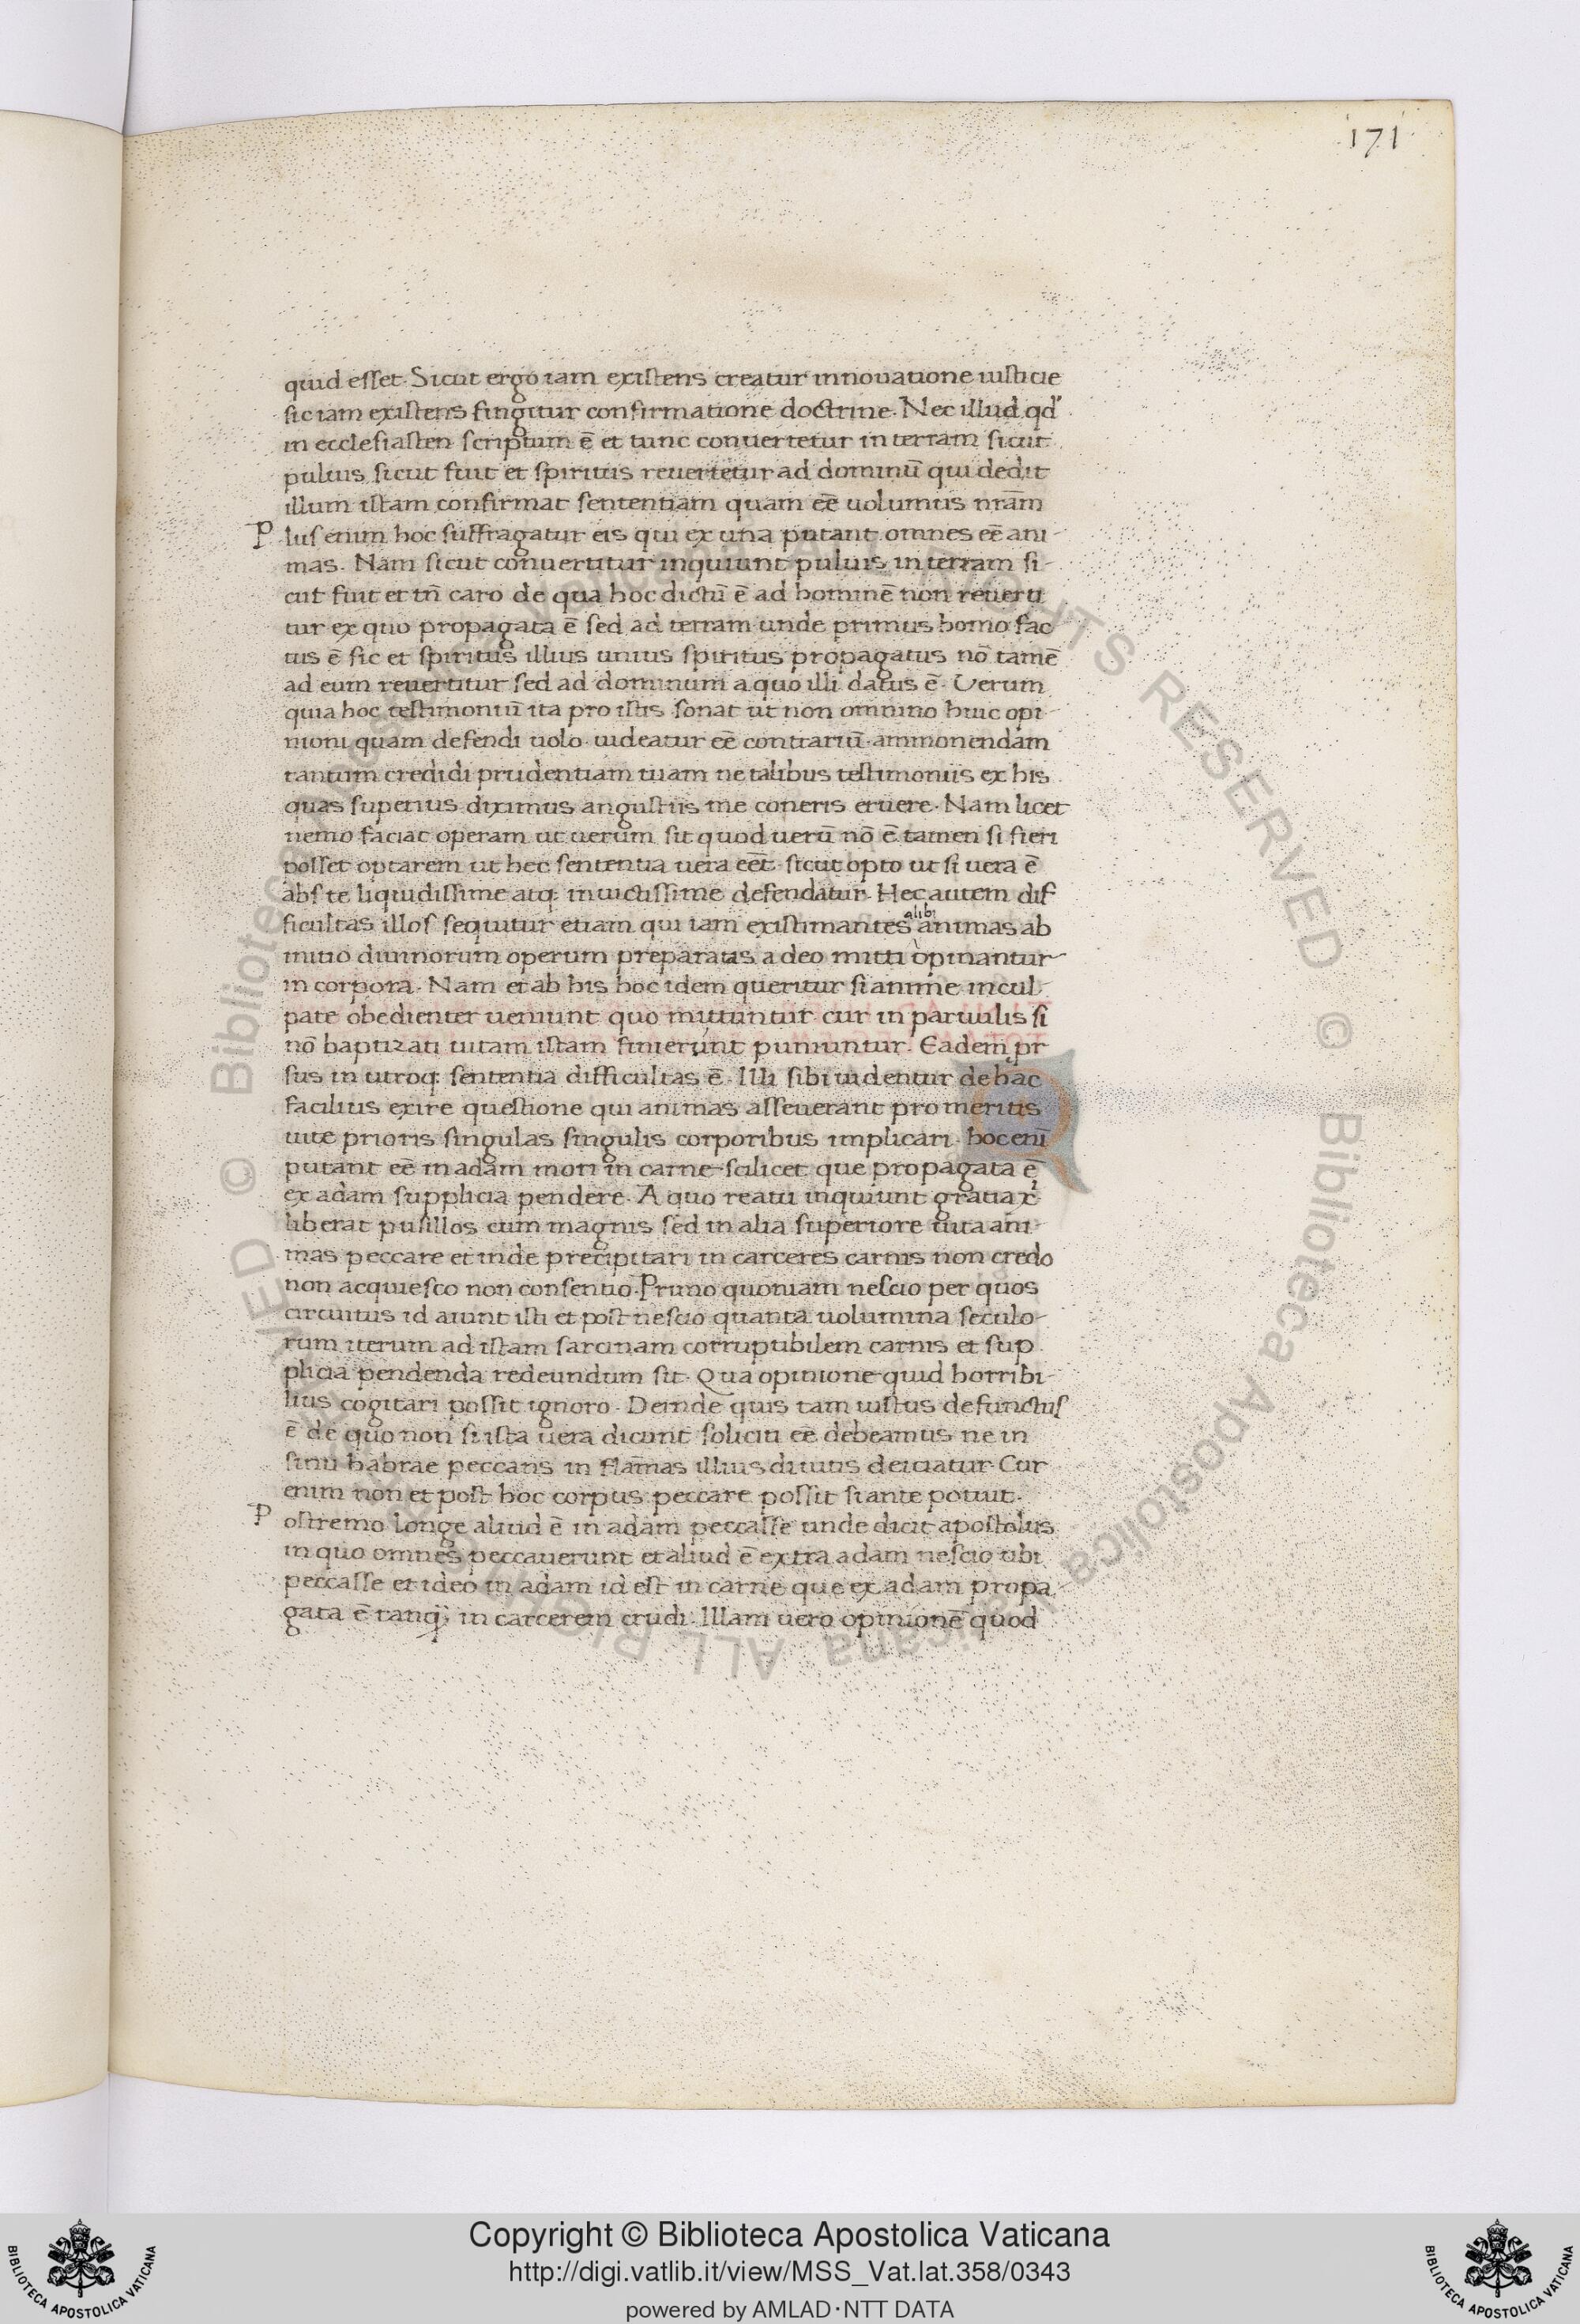 171
quid esset. Sicut ergo iam existens creatur innouatione iusticie
sic iam existens fingitur confirmatione doctrine. Nec illud qd'
in ecclesiasten scriptum ē et tunc conuertetur in terram sicut
puluis sicut fuit et spiritus reuertetur ad dominū qui dedit
illum istam confirmat sententiam quam eē uolumus nrām
Plus enim hoc suffragatur eis qui ex una putant omnes eē ani-
mas. Nam sicut conuertitur inquiunt puluis in terram si-
cut fuit et tn̄ caro de qua hoc dictū ē ad hominē non reuerti
tur ex quo propagata ē sed ad terram unde primus homo fac
tus ē sic et spiritus illius unius spiritus propagatus nō tamē
ad eum reuertitur sed ad dominum a quo illi datus ē. Verum
quia hoc testimoniū ita pro istis sonat ut non omnino huic opi-
nioni quam defendi uolo uideatur eē contrariū ammonendam
tantum credidi prudentiam tuam ne talibus testimoniis ex his
quas superius diximus angustiis me coneris eruere. Nam licet
nemo faciat operam ut uerum sit quod uerū nō ē tamen si fieri
posset optarem ut hec sententia uera eēt sicut opto ut si uera ē
abs te liquidissime atq; inuictissime defendatur. Hec autem dif
ficultas illos sequitur etiam qui iam existimantes alibi animas ab
initio diuinorum operum preparatas a deo mitti opinantur
in corpora. Nam et ab his hoc idem queritur si anime incul-
pate obedienter ueniunt quo mittuntur cur in paruulis si
nō baptizati uitam istam finierunt puniuntur. Eadem pr
sus in utroq; sententia difficultas ē. Illi sibi uidentur de hac
facilius exire questione qui animas asseuerant pro meritis
uite prioris singulas singulis corporibus implicari. hoc enī
putant eē in adam mori in carne scilicet que propagata ē
ex adam supplicia pendere. A quo reatu inquiunt gratia xi
liberat pusillos cum magnis sed in alia superiore uita ani-
mas peccare et inde precipitari in carceres carnis non credo
non acquiesco non consentio. Primo quoniam nescio per quos
circuitus id aiunt isti et post nescio quanta uolumina seculo-
rum iterum ad istam sarcinam corruptibilem carnis et sup
plicia pendenda redeundum sit. Qua opinione quid horribi-
lius cogitari possit ignoro. Deinde quis tam iustus defunctus
ē de quo non si ista uera dicunt soliciti eē debeamus ne in
sinu habrae peccans in flām̄as illius diuitis deiciatur Cur
enim non et post hoc corpus peccare possit si ante potuit.
Postremo longe aliud ē in adam peccasse unde dicit apostolus
in quo omnes peccauerunt et aliud ē extra adam nescio ubi
peccasse et ideo in adam id est in carne que ex adam propa
gata ē tanq̄ in carcerem trudi. Illam uero opinionē quod
© Biblioteca Apostolica Vaticana ALL RIGHTS RESERVED
Copyright © Biblioteca Apostolica Vaticana
http://digi.vatlib.it/view/MSS_Vat.lat.358/0343
powered by AMLAD·NTT DATA
BIBLIOTECA APOSTOLICA VATICANA
BIBLIOTECA APOSTOLICA VATICANA